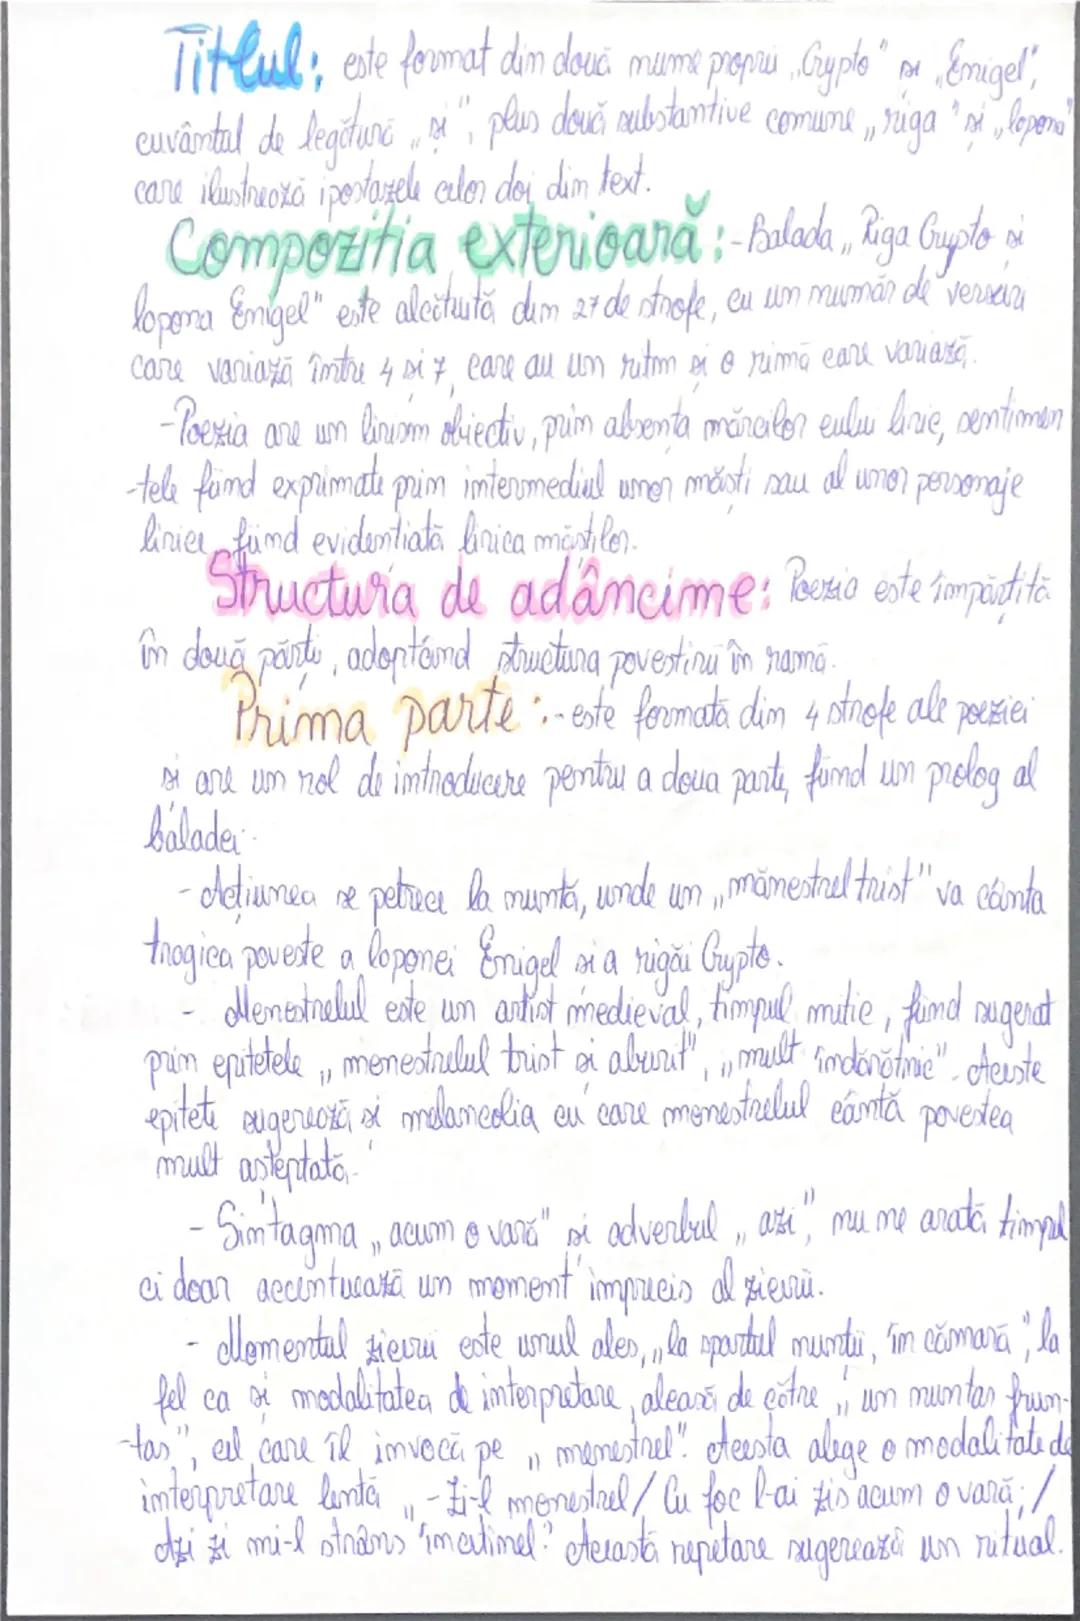 Titlul: este format din două nume proprii „Crypto" și „Enigel",
cuvântul de legătură „și", plus două substantive comune „riga" și „lapona"
care ilustrează ipostazele celor doi din text.
Compoziția exterioară: - Balada „Riga Crypto și
lapona Enigel" este alcătuită din 27 de strofe, cu un număr de versuri
care variază între 4 și 7, care au un ritm și o rimă care variază.
- Poezia are un lirism obiectiv, prin absența mărcilor eului liric, sentimen
-tele fiind exprimate prin intermediul unor măști sau al unor personaje
lirice, fiind evidențiată lirica măștilor.
Structura de adâncime: Poezia este împărțită
în două părți, adoptând structura povestirii în ramă.
Prima parte: - este formată din 4 strofe ale poeziei
și are un rol de introducere pentru a doua parte, fiind un prolog al
baladei.
- Acțiunea se petrece la nuntă, unde un „mănestrel trist" va cânta
tragica poveste a laponei Enigel și a rigăi Crypto.
- Menestrelul este un artist medieval, timpul mitic, fiind sugerat
prin epitetele „menestrelul trist și aburit", „mult îndărătnic". Aceste
epitete sugerează și melancolia cu care menestrelul cântă povestea
mult așteptată.
- Sintagma „acum o vară" și adverbul „azi", nu ne arată timpul
ci doar accentuează un moment imprecis al zicerii.
- Momentul zicerii este unul ales, „la spartul nuntii, în cămară", la
fel ca și modalitatea de interpretare, aleasă de către „un nuntaș frun-
-taș", cel care îl invocă pe „menestrel". Acesta alege o modalitate de
interpretare lentă „-Zi-l menestrel / Cu foc l-ai zis acum o vară; /
Azi zi mi-l strâns încetinel". Această repetare sugerează un ritual.